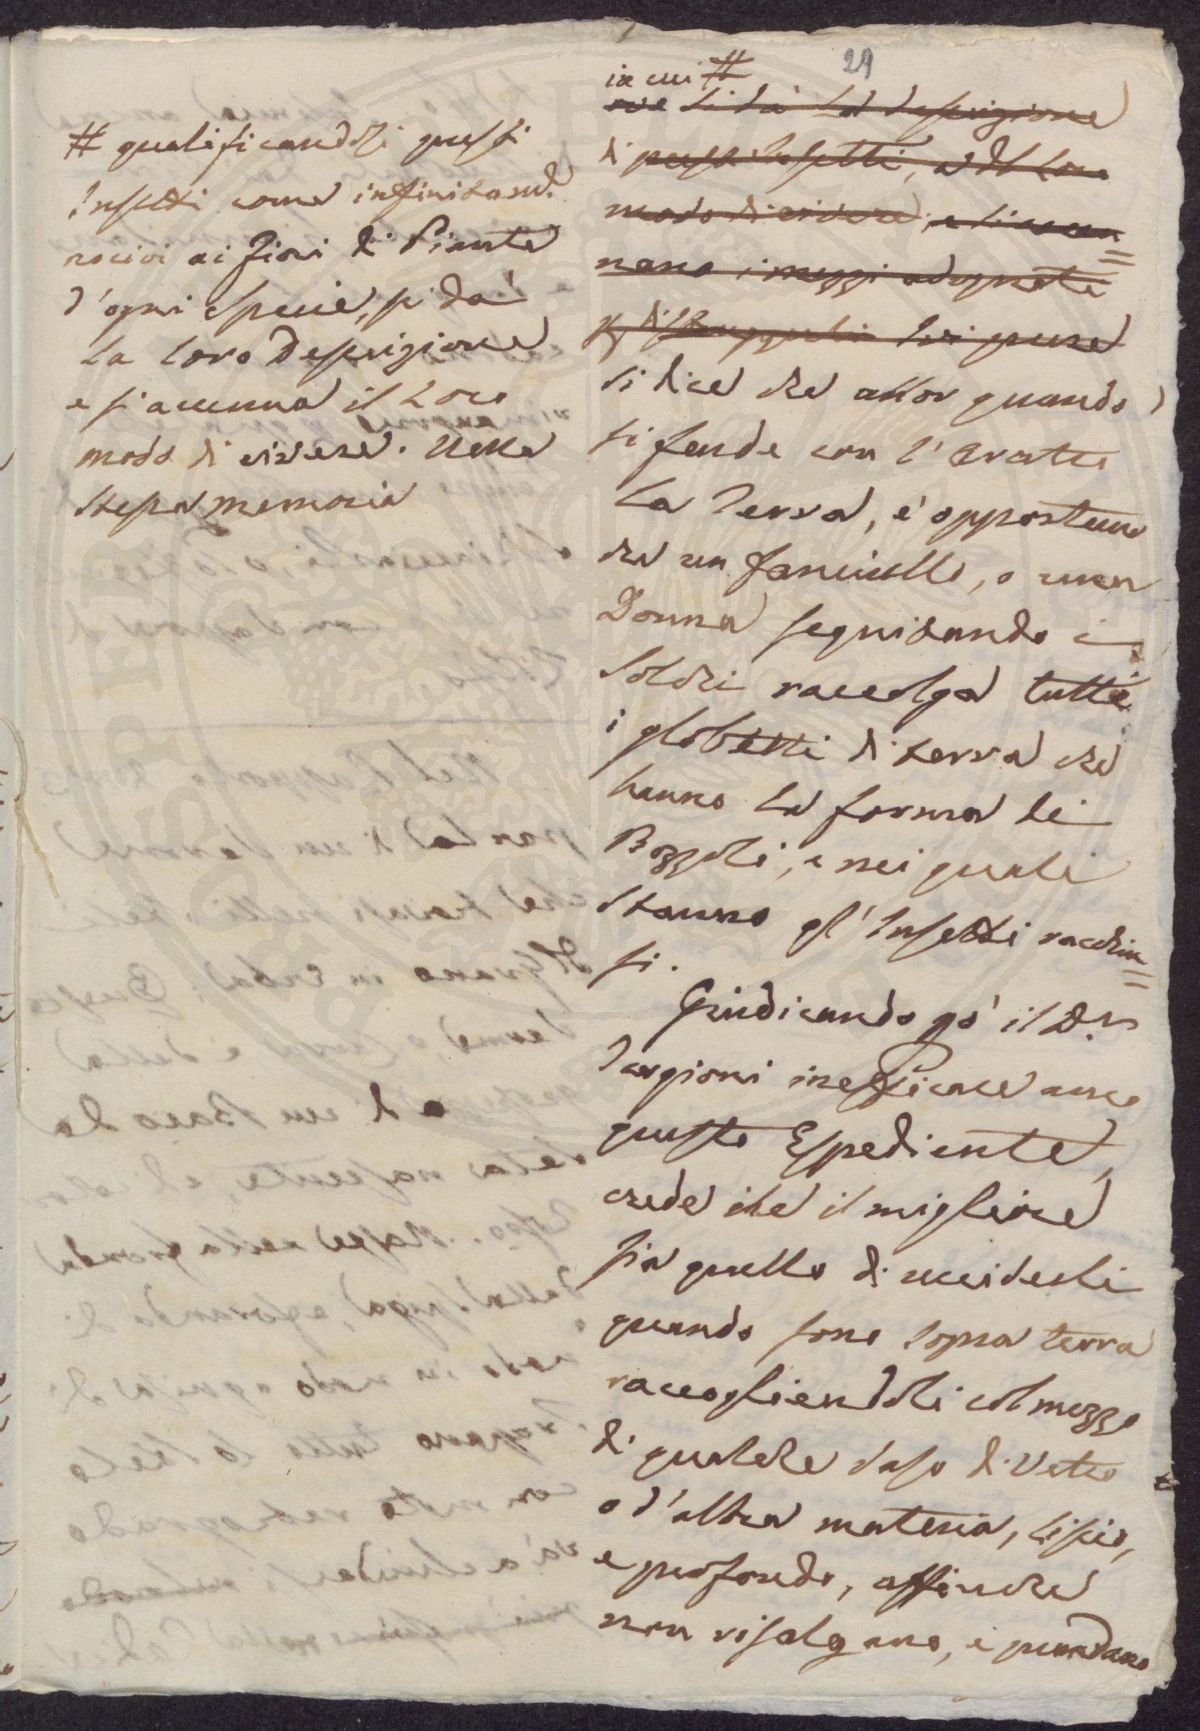 29
# qualificandosi questi
Insetti come infinitam.te
nocivi ai fiori di Piante
d'ogni specie, si dà
la loro Descrizione
e si accenna il loro
modo di vivere. Nella
stessa memoria
in cui #
ove si dà la descrizione
di questi Insetti, e del loro
modo di vivere, e si accen=
nano i mezzi adoprati
p distruggerli. Ivi pure
si dice che allor quando
si fende con l'Aratro
la Terra, è opportuno
che un fanciullo, o una
Donna seguitando i
Solchi raccolga tutti
i globetti di terra che
hanno la forma di
Bozzoli, e nei quali
stanno gl'Insetti racchiu=
si.
Giudicando però il D.r
Targioni inefficace anco
questo Espediente,
crede che il migliore
sia quello di ucciderli
quando sono sopra terra
raccogliendoli col mezzo
di qualche Vaso di Vetro
o d'altra materia, liscio,
e profondo, affinchè
non risalgano, e prendano